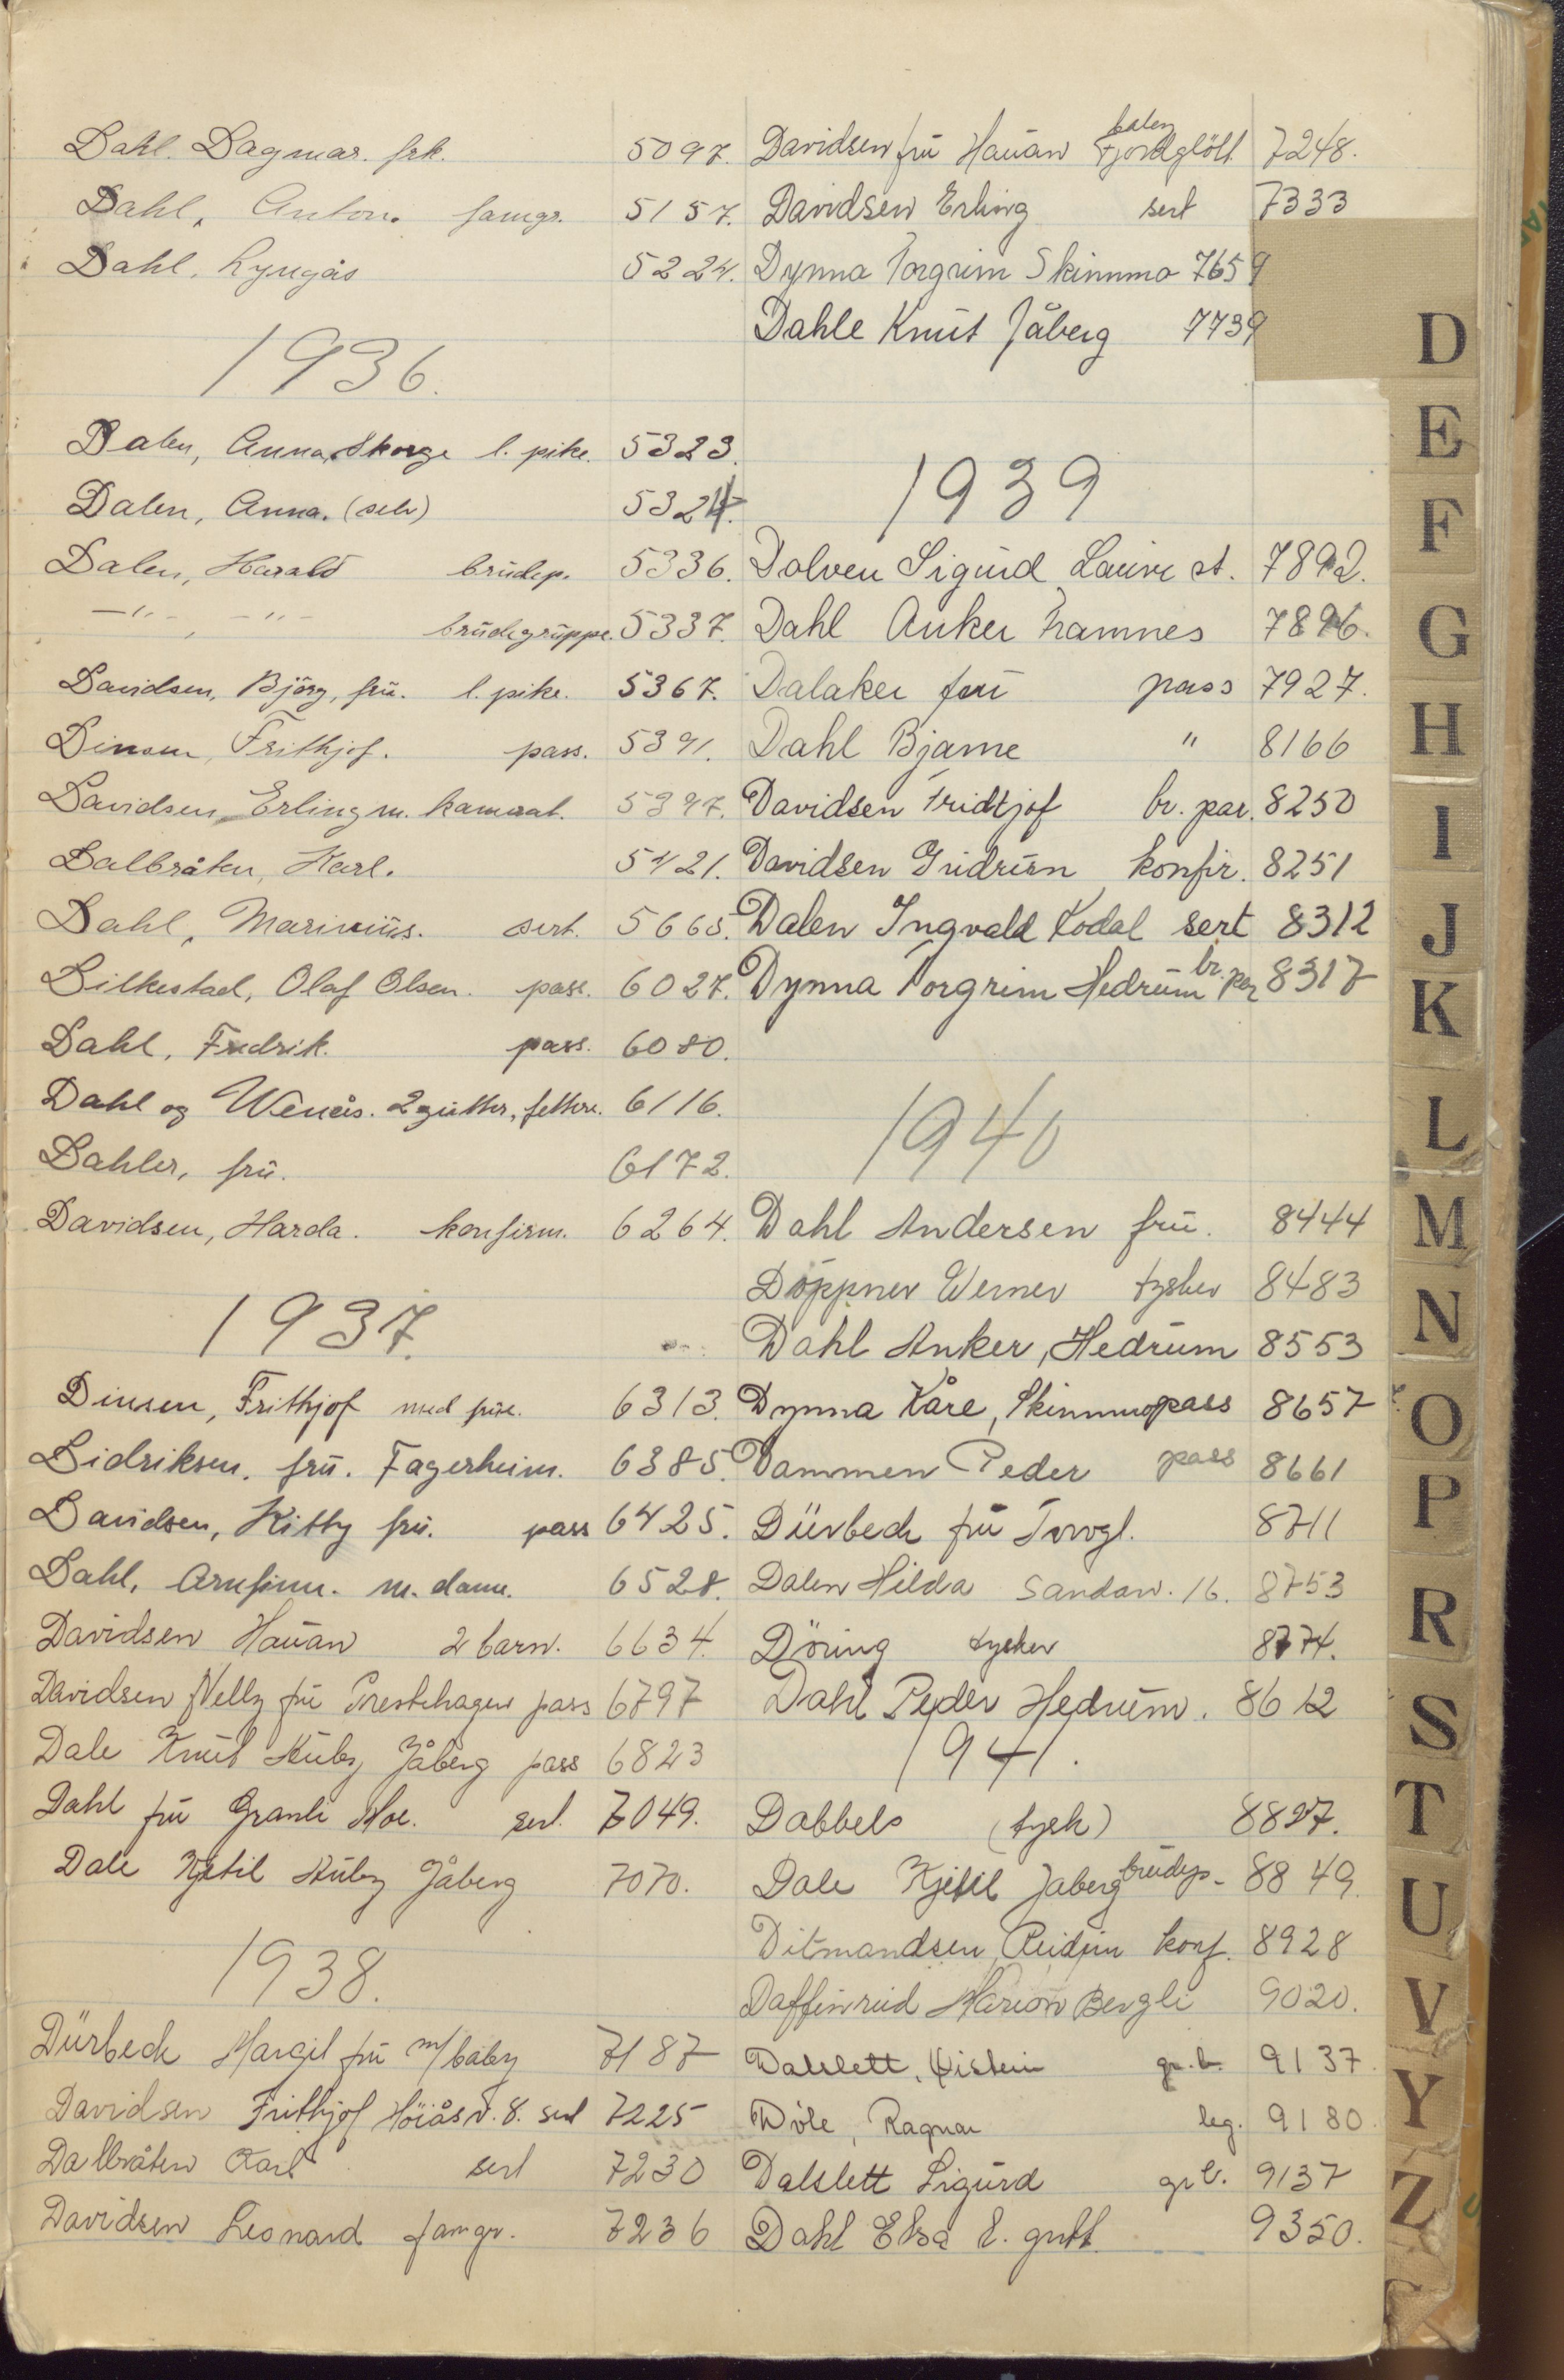 Dahl. Dagmar. frk. 5097.
Dahl, Anton. famgr. 5157.
Dahl, Lyngås 5224.
1936.
Dalen, Anna, Skorge l. pike. 5323.
Dalen, Anna. (selv) 5324.
Dalen, Harald brudep. 5336.
—"—, —"— brudegruppe. 5337.
Davidsen, Bjørg, frü. l. pike. 5367.
Dinsen, Frithjof. pass. 5391.
Davidsen Erling m. kamerat. 5397.
Dalbråten, Karl. 5421.
Dahl, Marinius. sert. 5665.
Dilkestad, Olaf Olsen. pass. 6027.
Dahl, Fredrik. pass. 6080.
Dahl og Wenås. 2 gutter, fettere. 6116.
Dahler, frü. 6172.
Davidsen, Harda. konfirm. 6264.
1937.
Dinsen, Frithjof med frue. 6313.
Didriksen, frü. Fagerheim. 6385.
Davidsen, Kitty frü. pass 6425.
Dahl, Arnfinn. m. dame. 6528.
Davidsen Hauan 2 barn. 6634.
Davidsen Nelly frü Prestehagen pass 6797
Dale Knüt Haüby Jåberg pass 6823
Dahl frü Granli Moe. sert. 7049.
Dale Kjetil Haüby Jåberg 7070.
1938.
Dürbeck Margit frü m/baby 7187
Davidsen Frithjof Höiåsv. 8. sert 7225
Dalbråten Karl sert 7230
Davidsen Leonard famgr. 7236
Davidsen frü Haüan Fjordglött 7248.
Davidsen Erling sert 7333
Dynna Torgrim Skinnmo 7659
Dahle Knüt Jåberg 7739
1939
Dolven Sigürd Laurv st. 7892.
Dahl Anker Hamnes 7896.
Dalaker frü pass 7927.
Dahl Bjarne " 8166
Davidsen Fridtjof br. par. 8250
Davidsen Güdrün konfir. 8251
Dalen Ingvald Kodal sert 8312
Dynna Torgrim Hedrüm br. par 8317
1940
Dahl Andersen frü. 8444
Döppner Werner tysker 8483
Dahl Anker, Hedrüm 8553
Dynna Kåre, Skinnmo pass 8657
Dammen Peder pass 8661
Dürbeck frü Torvgl. 8711
Dalen Hilda Sandarv. 16. 8753
Döring tysker 8774.
Dahl Peder Hedrüm. 8612
1941.
Dabbels (tysk) 8827.
Dale Kjetil Jåberg brudep. 8849.
Ditmandsen Reidün konf. 8928
Daffinrüd Marion Bergli 9020.
Dalslett, Øistein gr.b. 9137.
Døle, Ragnar leg. 9180.
Dalslett Sigürd gr b. 9137
Dahl Elsa l. gutt 9350.
D
E
F
G
H
I
J
K
L
M
N
O
P
R
S
T
U
V
Y
Z